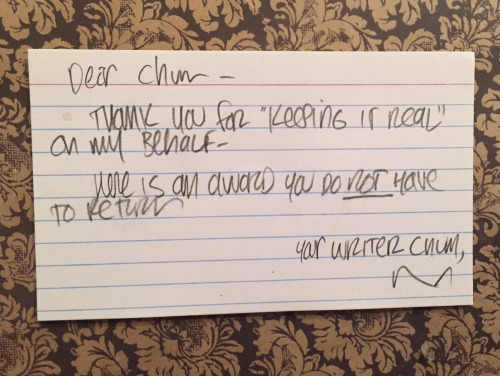 Dear Chum -
Thank you for "Keeping it real"
on my behalf -
Here is an award you do not have
to return
your writer chum,